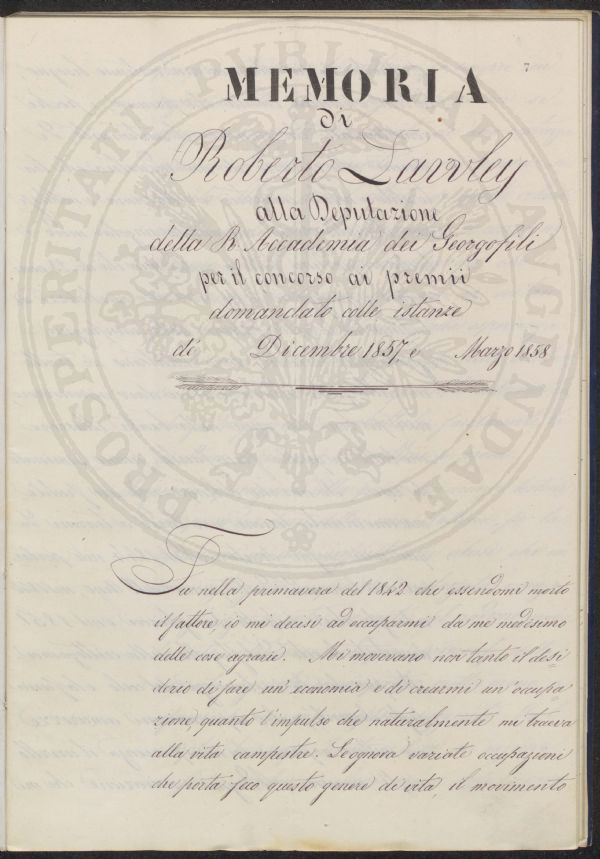 7
MEMORIA
di
Roberto Lawley
alla Deputazione
della R. Accademia dei Georgofili
per il concorso ai premii
domandato colle istanze
de' Dicembre 1857, e Marzo 1858
Fu nella primavera del 1842 che essendomi morto
il fattore, io mi decisi ad occuparmi da me medesimo
delle cose agrarie. Mi movevano non tanto il desi
derio di fare un' economia e di crearmi un' occupa
zione, quanto l'impulso che naturalmente mi traeva
alla vita campestre. Le ognova variate occupazioni
che porta seco questo genere di vita, il movimento
PROSPERITATI PVBLICAE AVGENDAE